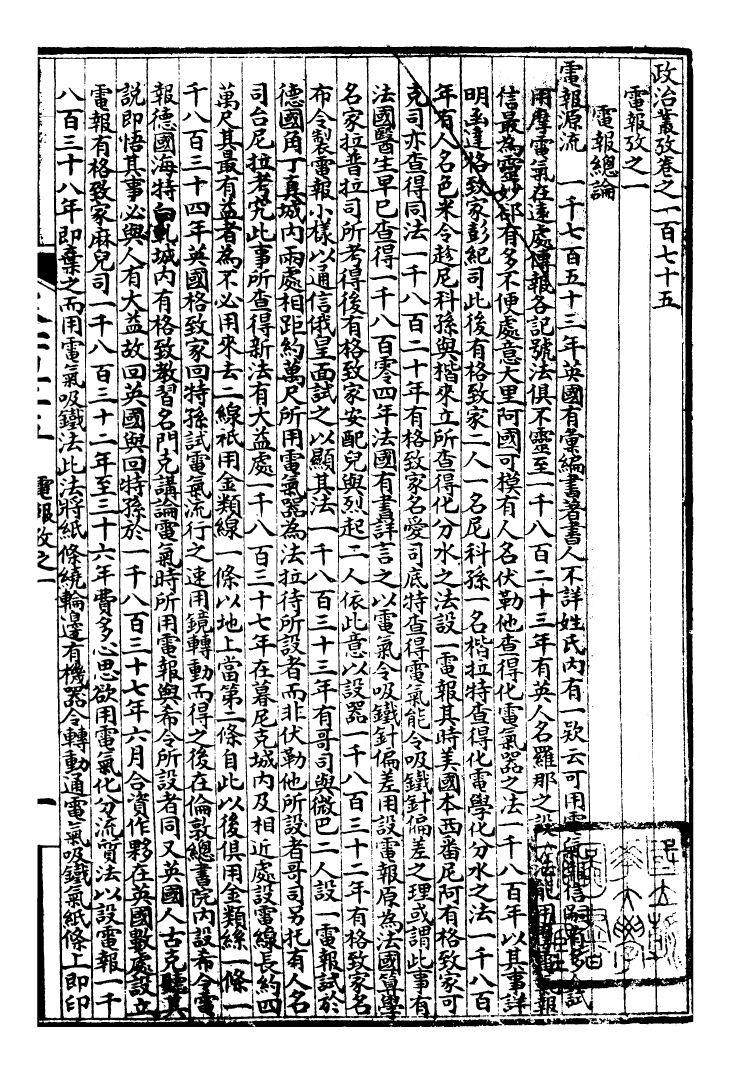 政治叢攷卷之一百七十五
電報攷之一
電報總論
電報源流　一千七百五十三年英國有彙編書著書人不詳姓氏內有一欵云可用電氣通信嗣有多人試
用摩電氣在遠處傳報各記號法俱不靈至一千八百二十三年有英人名羅那之設一法能用摩電氣報
信最為靈妙却有多不便處意大里阿國可模有人名伏勒他查得化電氣器之法一千八百年以其事詳
明函達格致家彭紀司此後有格致家二人一名尼科孫一名楷拉特查得化電學化分水之法一千八百
年有人名邑米令趁尼科孫與楷來立所查得化分水之法設一電報其時美國本西番尼阿有格致家可
克司亦查得同法一千八百二十年有格致家名愛司底特查得電氣能令吸鐵針偏差之理或謂此事有
法國醫生早已查得一千八百零四年法國有書詳言之以電氣令吸鐵針偏差用設電報原為法國算學
名家拉普拉司所考得後有格致家安配兒與烈起二人依此意以設器一千八百三十二年有格致家名
布令製電報小樣以通信俄皇面試之以顯其法一千八百三十三年有哥司與微巴二人設一電報試於
德國角丁真城內兩處相距約萬尺所用電氣器為法拉待所設者而非伏勒他所設者哥司另托有人名
司台尼拉考究此事所查得新法有大益處一千八百三十七年在暮尼克城內及相近處設電線長約四
萬尺其最有益者為不必用來去二線祇用金類線一條以地上當第二條自此以後俱用金類絲一條一
千八百三十四年英國格致家回特孫試電氣流行之速用鏡轉動而得之後在倫敦總書院內設希令電
報德國海特白軋城內有格致教習名門克講論電氣時所用電報與希令所設者同又英國人古克聽其
說即悟其事必與人有大益故回英國與回特孫於一千八百三十七年六月合資作夥在英國數處設立
電報有格致家麻兒司一千八百三十二年至三十六年費多心思欲用電氣化分流質法以設電報一千
八百三十八年即棄之而用電氣吸鐵法此法將紙條繞輪邊有機器令轉動通電氣吸鐵氣紙條上即印
電報攷之一
一